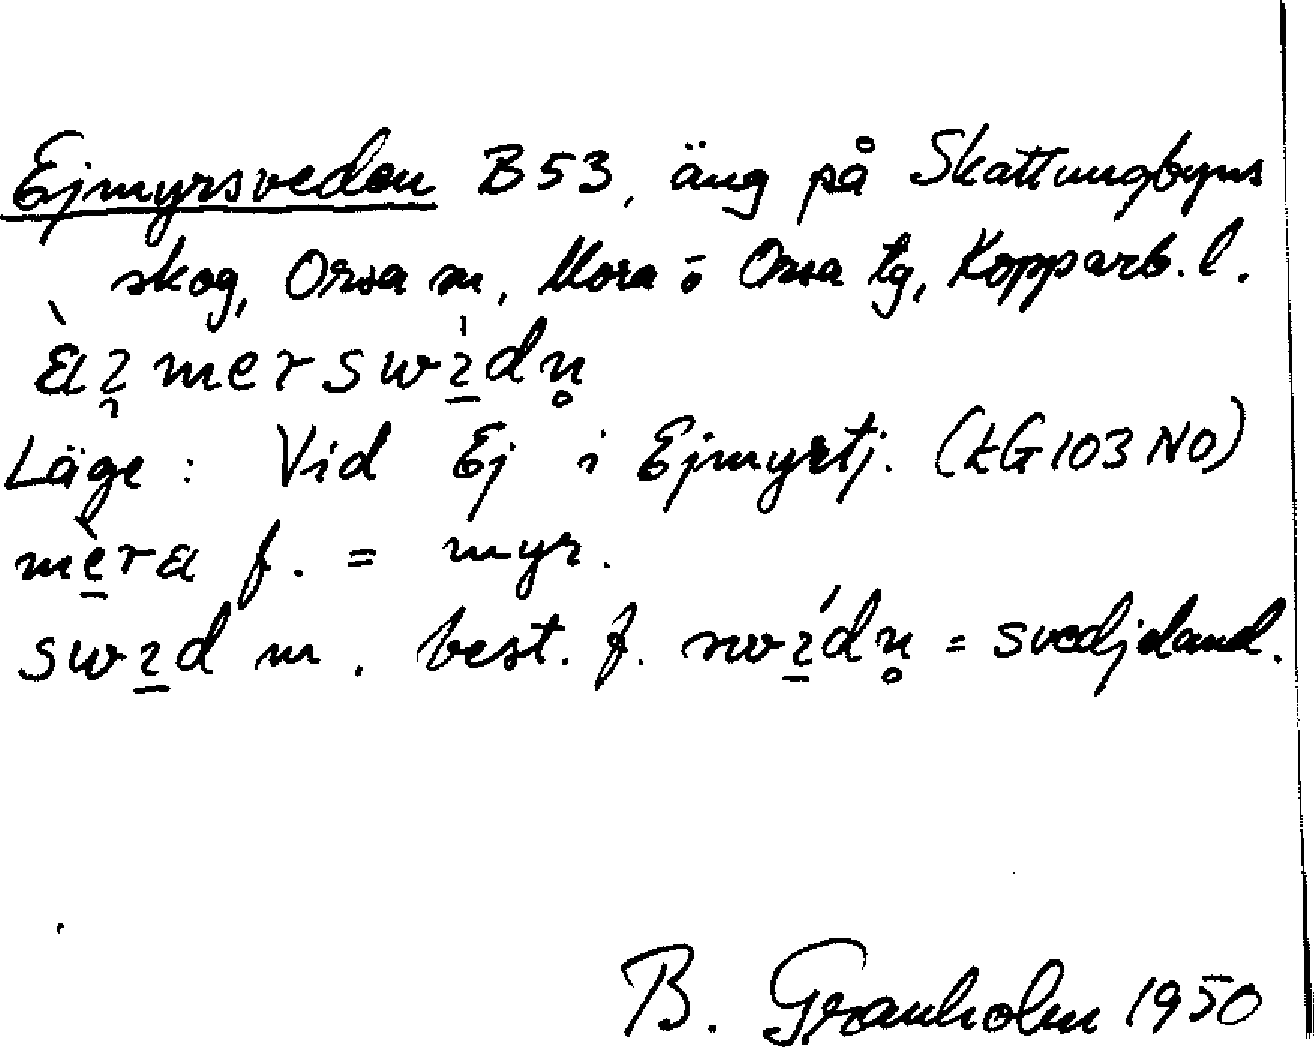 Ejmyrsveden B53, äng på Skattungbyns
skog, Orsa sn, Mora o Orsa tg, Kopparb. l.
Läge: Vid Ej i Ejmyrtj. (tG103 NO)
f. = myr.
m. best. f. = svedjeland.
B. Granholm 1950